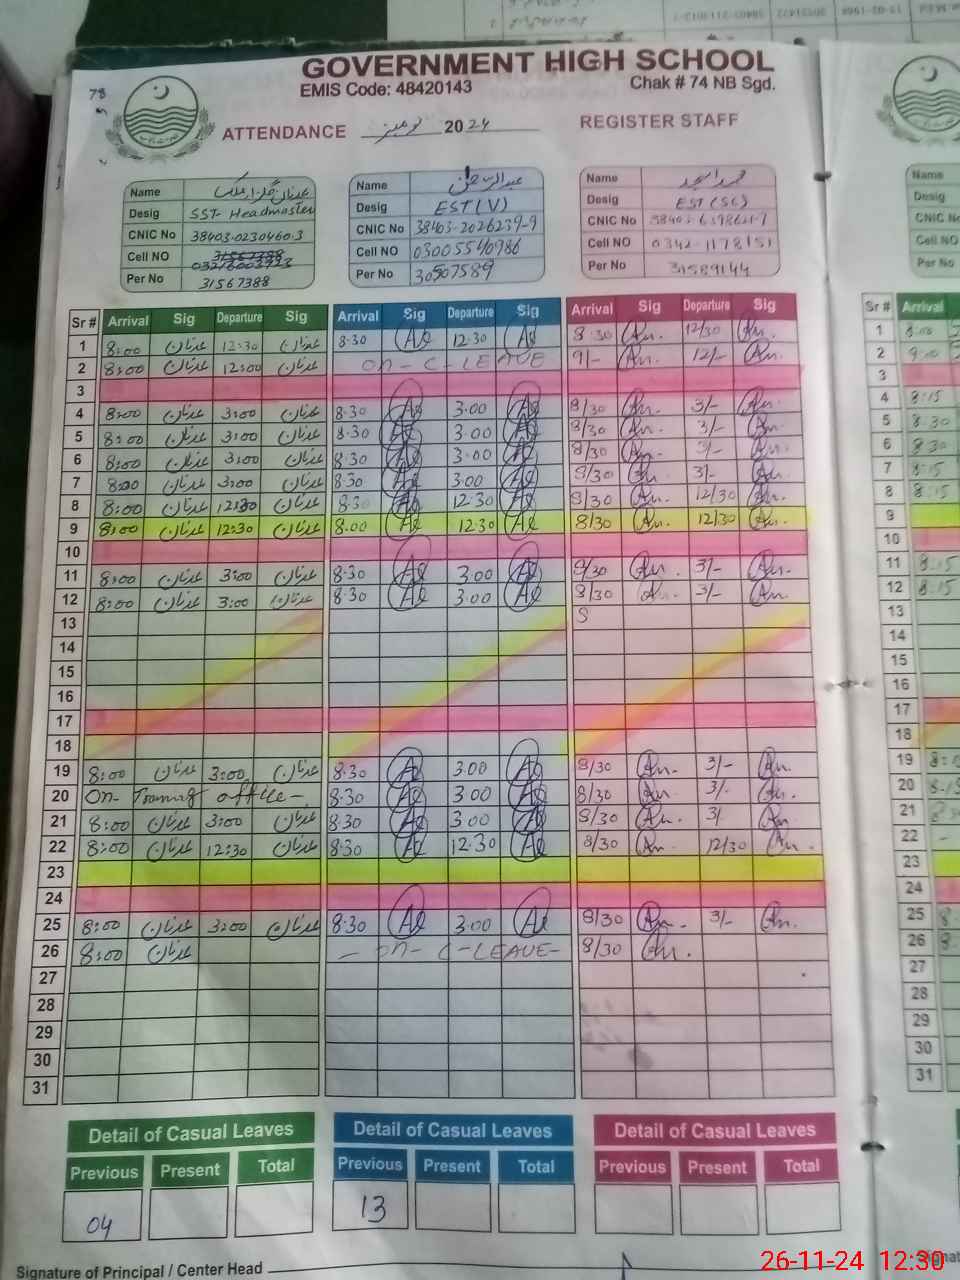 GOVERNMENT HIGH SCHOOL
EMIS Code: 48420143 Chak # 74 NB Sgd.
78
ATTENDANCE نومبر 2024 REGISTER STAFF
Name عدنان
Desig SST- Headmaster
CNIC No 38403-0230460-3
Cell NO
Per No 31567388
Name عبدالرحمٰن
Desig EST (V)
CNIC No 38403-2026239-9
Cell NO 03005540986
Per No 30507589
Name محمد امجد
Desig EST (SC)
CNIC No
Cell NO 0342-1178151
Per No 31589144
Sr # Arrival Sig Departure Sig Arrival Sig Departure Sig Arrival Sig Departure Sig
1 8:00 عدنان 12:30 عدنان 8.30 12.30 8.30 12/30
2 8:00 عدنان 12:00 عدنان ON - C - LEAVE 9/- 12/-
3
4 8:00 عدنان 3:00 عدنان 8.30 3.00 8/30 3/-
5 8:00 عدنان 3:00 عدنان 8.30 3.00 8/30 3/-
6 8:00 عدنان 3:00 عدنان 8.30 3.00 8/30 3/-
7 8:00 عدنان 3:00 عدنان 8.30 3.00 8/30 3/-
8 8:00 عدنان 12:30 عدنان 8.30 12.30 8/30 12/30
9 8:00 عدنان 12:30 عدنان 8.00 12.30 8/30 12/30
10
11 8:00 عدنان 3:00 عدنان 8.30 3.00 8/30 3/-
12 8:00 عدنان 3:00 عدنان 8.30 3.00 8/30 3/-
13 S
14
15
16
17
18
19 8:00 عدنان 3:00 عدنان 8.30 3.00 8/30 3/-
20 On- Training office - 8.30 3.00 8/30 3/-
21 8:00 عدنان 3:00 عدنان 8.30 3.00 8/30 3/
22 8:00 عدنان 12:30 عدنان 8.30 12.30 8/30 12/30
23
24
25 8:00 عدنان 3:00 عدنان 8.30 3.00 8/30 3/-
26 8:00 عدنان - ON - C - LEAVE - 8/30
27
28
29
30
31
Detail of Casual Leaves Detail of Casual Leaves Detail of Casual Leaves
Previous Present Total Previous Present Total Previous Present Total
04 13
Signature of Principal / Center Head
Name
Desig
CNIC No
Cell NO
Per No
Sr # Arrival
1
2 9:00
3
4 8:15
5 8:30
6 8:30
7 8:15
8 8:15
9
10
11 8:15
12 8:15
13
14
15
16
17
18
19
20 8:15
21
22 -
23
24
25
26
27
28
29
30
31
26-11-24 12:30